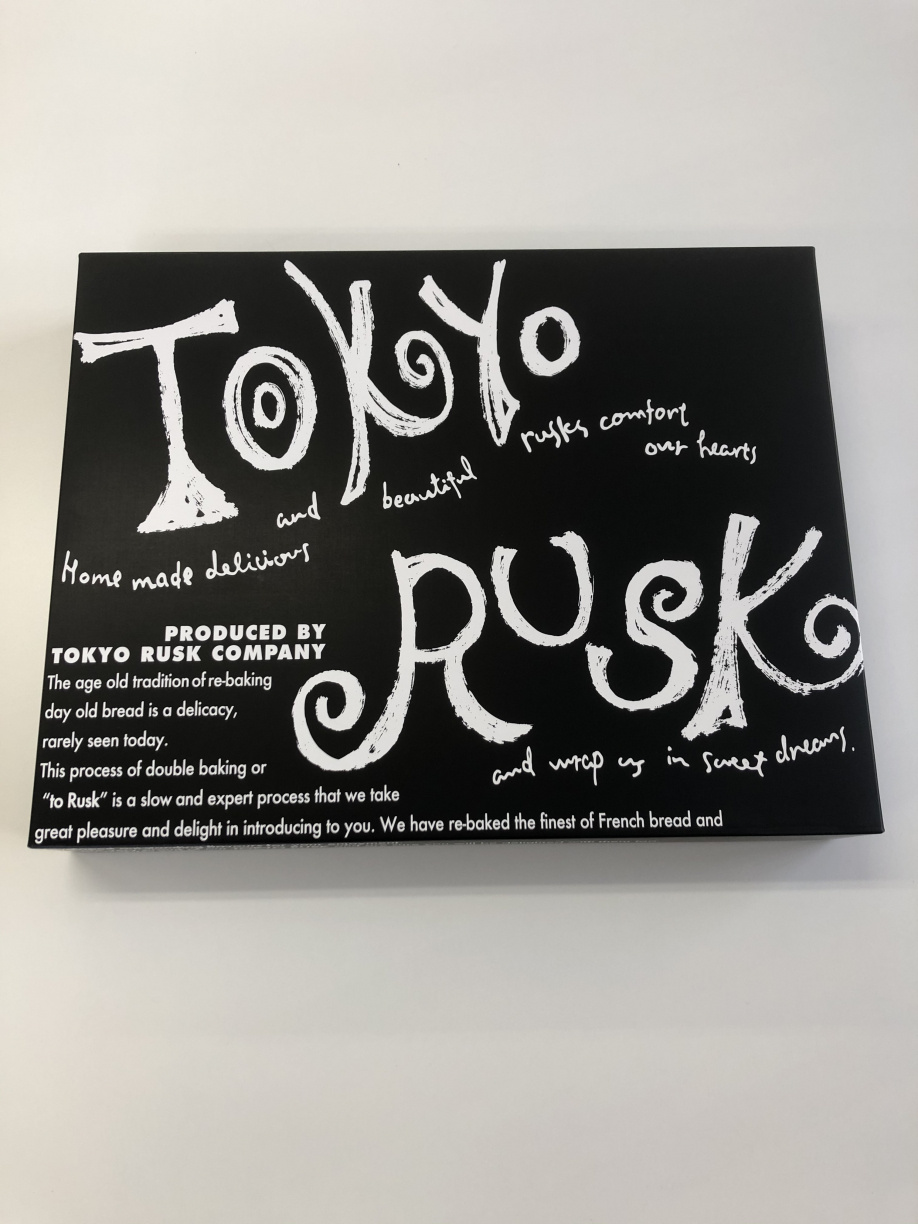 TOKYO
rusks comfort
our hearts
Home made delicious and beautiful
RUSK
and wrap us in sweet dreams.
PRODUCED BY
TOKYO RUSK COMPANY
The age old tradition of re-baking
day old bread is a delicacy,
rarely seen today.
This process of double baking or
“to Rusk” is a slow and expert process that we take
great pleasure and delight in introducing to you. We have re-baked the finest of French bread and